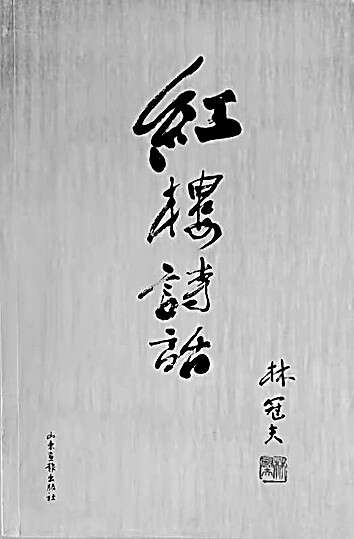 紅樓詩話
林冠夫
山東画報出版社